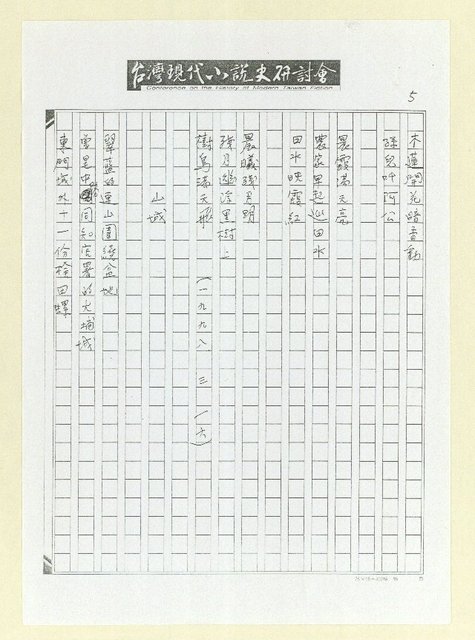 台灣現代小說史研討會
Conference on the History of Modern Taiwan Fiction
5
木蓮開花踏音動
孫兒叫阿公
晨霞滿天亮
農家早起巡田水
田水映霞紅
晨曦殘月明
殘月照在黑樹上
樹鳥滿天飛 (一九九八 三 一六)
山城
翠藍的連山圍繞盆地
曾是中路同知官署的大埔城
東門城外十一份稜田